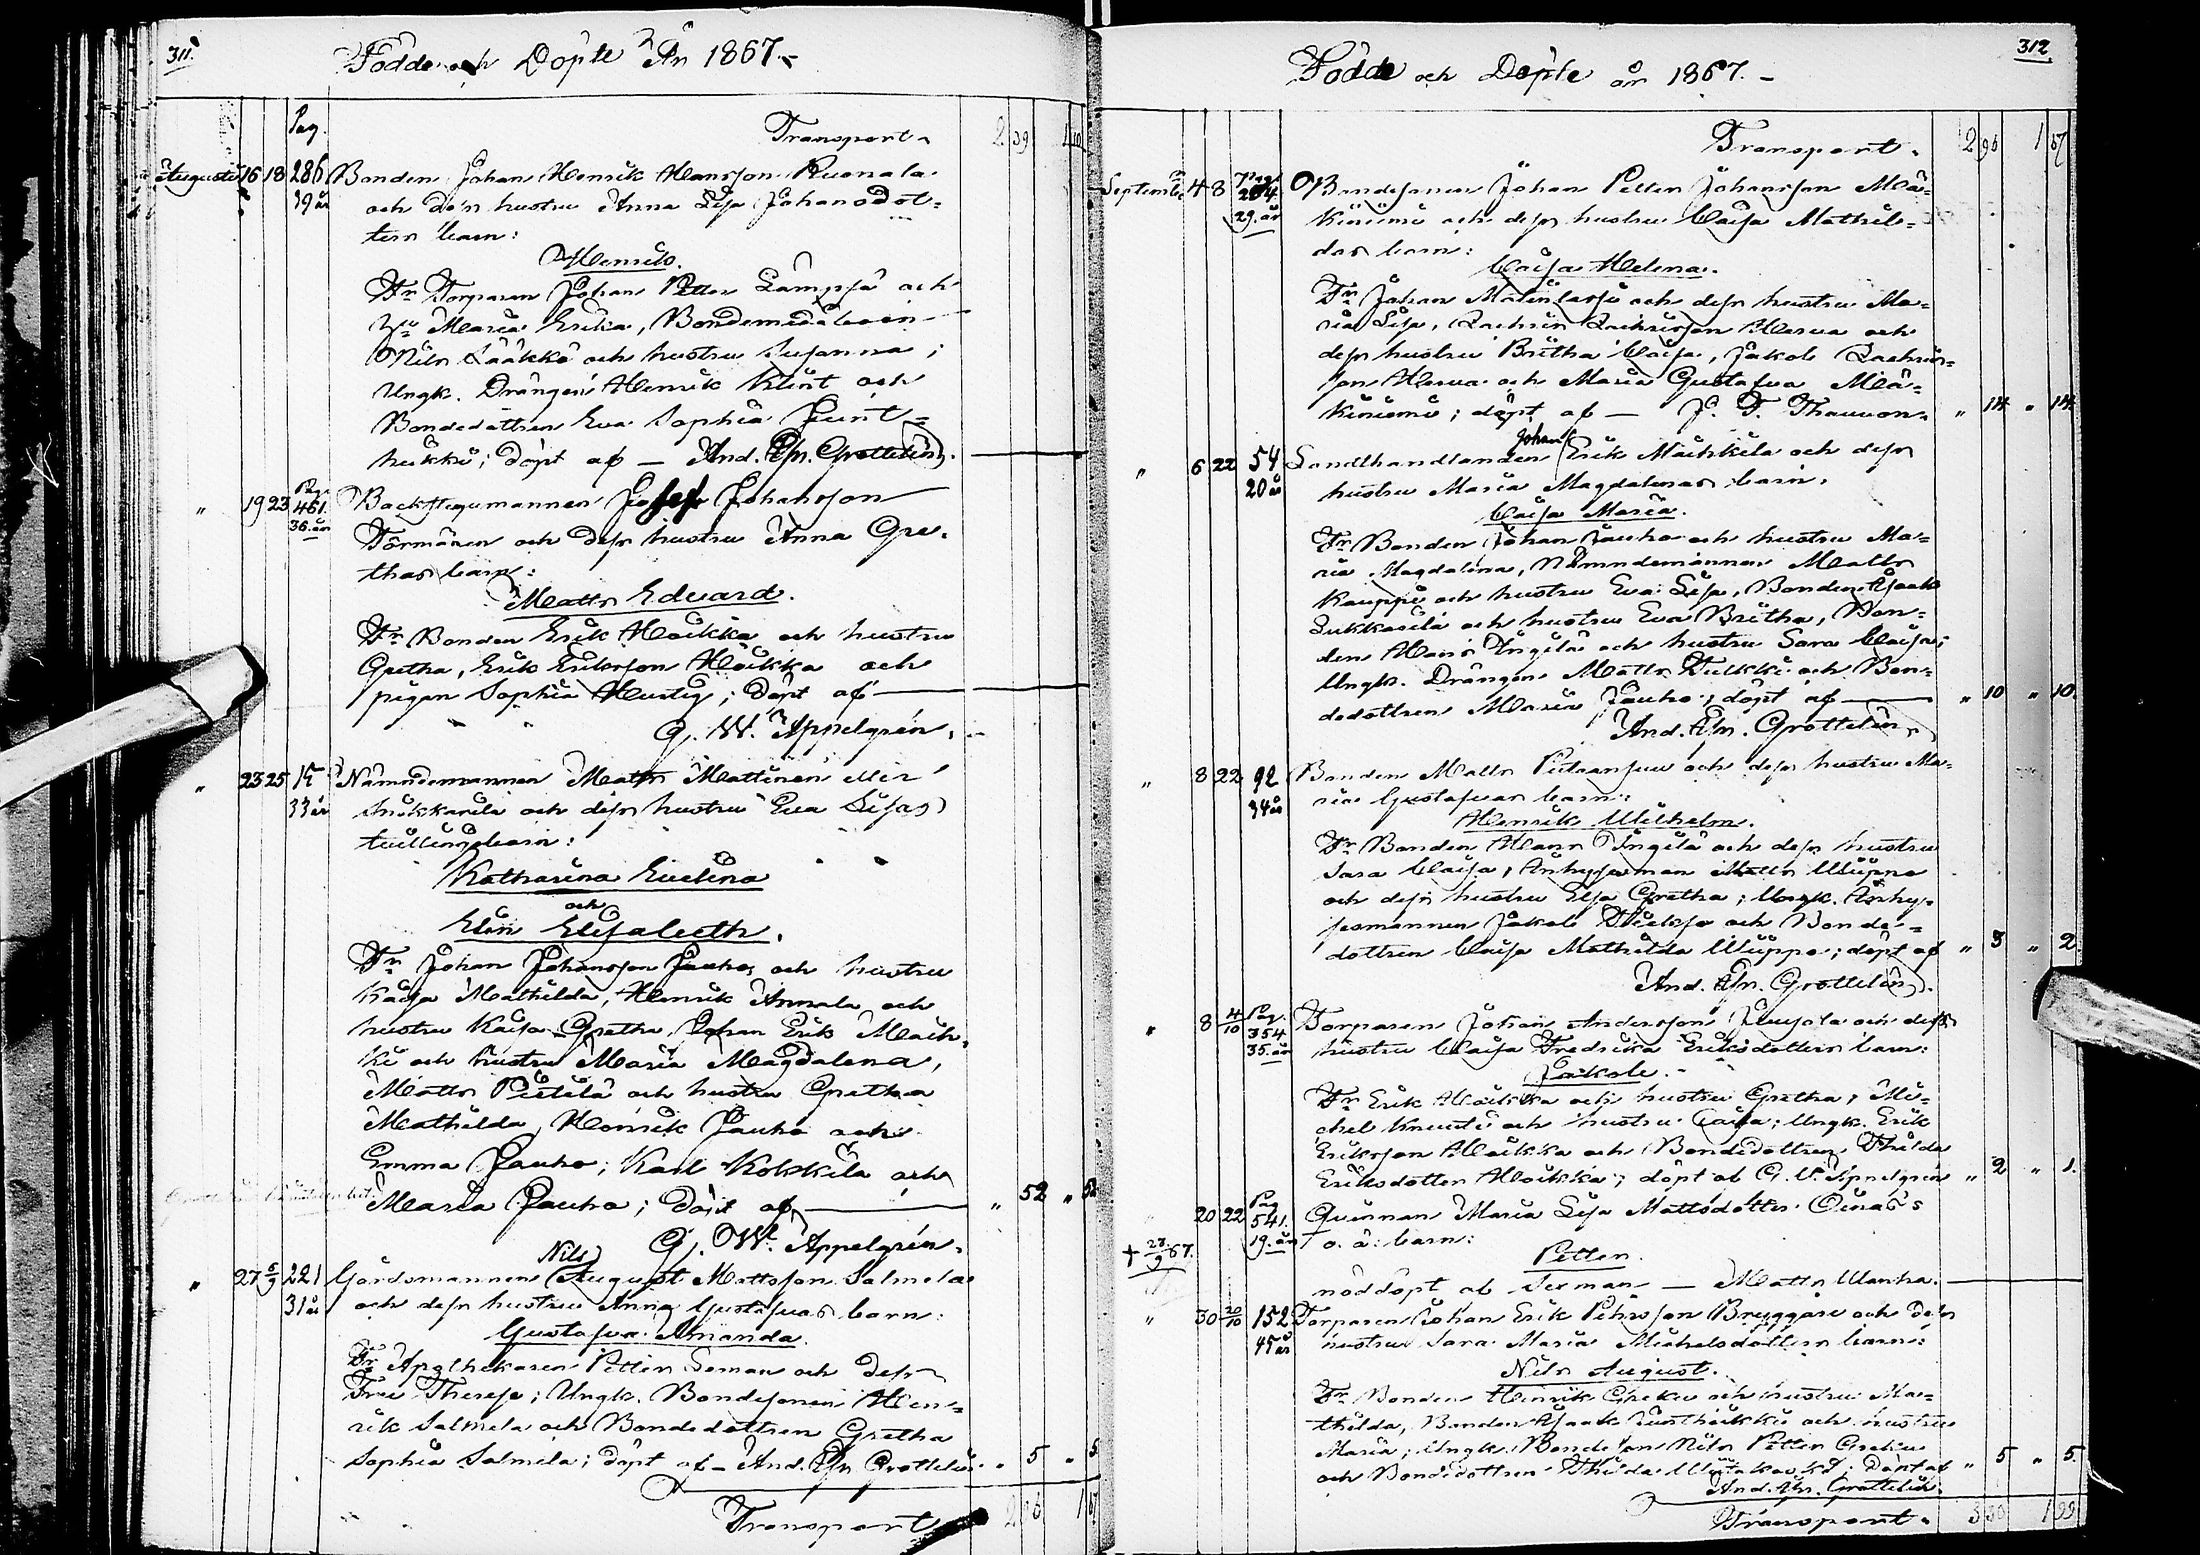 311.
Födde och Döpte År 1867.
Pag.
Transport. 2 39 1 10
Augusti 16 18 286 Bonden Johan Henrik Hansson Ruonala
39 år och dess hustru Anna Lisa Johansdot-
ters barn:
Henrik.
Fr Torparen Johan Petter Lampsa och
Hu Maria Erika, Bondemågen
Nils Lääkkö och hustru Susanna;
Ungk. Drängen Henrik Klint och
Bondedottren Eva Sophia Junt-
hikki; döpt af — And. Joh. Grottelin.
" 19 23 Pag. 461. Backstugumannen Josef Johansson
36. år Törmänen och dess hustru Anna Gre-
thas barn:
Matts Eduard.
Fr Bonden Erik Hoikka och hustru
Gretha, Erik Eriksson Hoikka och
pigan Sophia Hertig; döpt af
G. W. Appelgrén.
" 23 25 Nämndemannen Matts Mattinen
33 år och dess hustru Eva Lisas
tvillingebarn:
Katharina Evelina
och
Elin Elisabeth.
Fr Johan Johansson Jauho och hustru
Kajsa Mathilda, Henrik Annala och
hustru Kajsa Gretha, Johan Erik Maih-
ki och hustru Maria Magdalena,
Matts Pietilä och hustru Gretha
Mathilda, Henrik Jauho och
Emma Jauho; Karl Kokkila och
Maria Jauho; döpt af " 52 " 52
G. W. Appelgrén.
Nils
" 27 5/9 221 Gårdsmannen August Mattsson Salmela
31 år och dess hustru Anna Gustafvas barn:
Gustafva Amanda.
Fr Apothekaren Petter Seman och dess
Fru Therese; Ungk. Bondesonen Hen-
rik Salmela och Bondedottren Gretha
Sophia Salmela; döpt af — And. Joh. Grottelin. " 5 " 5
Transport
312
Födde och Döpte år 1867.
Transport. 2 96 1 67
September 4 8 Pag. 204 Bondesonen Johan Petter Johansson Mä-
29. år kiniemi och dess hustru Caisa Mathil-
das barn:
Caisa Helena.
Fr Johan Matinlassi och dess hustru Ma-
ria Lisa, Zachris Zachrisson Herva och
dess hustru Britha Caisa, Jakob Zachris-
son Herva och Maria Gustafva Mä-
kiniemi; döpt af — J. F. Thauvon. " 14 " 14
Johan
" 6 22 54 Landthandlanden Erik Maihkila och dess
20 år hustru Maria Magdalenas barn:
Caisa Maria.
Fr Bonden Johan Jauho och hustru Ma-
ria Magdalena, Nämndemannen Matts
Kauppi och hustru Eva Lisa, Bonden Isaak
Lukkarila och hustru Eva Britha, Bon-
den Hans Ingilä och hustru Sara Caisa;
Ungk. Drängen Matts Tulkki och Bon-
dedottren Maria Jauho; döpt af " 10 " 10.
And. Joh. Grottelin.
" 8 22 92 Bonden Matts Pietarinsuu och dess hustru Ma-
34 år ria Gustafvas barn:
Henrik Wilhelm.
Fr Bonden Hans Ingilä och dess hustru
Sara Caisa, Inhysesman Matts Uuppo
och dess hustru Elsa Gretha; Ungk. Inhy-
sesmannen Jakob och Bonde-
dottren Caisa Mathilda Uuppo; döpt af " 3 " 2.
And. Joh. Grottelin.
" 8 4/10 Pag. 354 Torparen Johan Andersson och dess
35. år hustru Caisa Fredrika Eriksdotters barn:
Jakob.
Fr Erik Hoikka och hustru Gretha, Mi-
chel Knuuti och hustru Caisa; Ungk. Erik
Eriksson Hoikka och Bondedottren Thilda
Eriksdotter Hoikka; döpt af G. W. Appelgrén " 2 " 1.
" 20 22 Pag 541. Quinnan Maria Lisa Mattsdotter Oinas's
+ 27/9 67. 19. år o. ä. barn:
Petter.
nöddöpt af Sexman — Matts Wanha.
" 30 20/10 152 Torparen Johan Erik Pehrsson Bryggare och dess
45 år hustru Sara Maria Michelsdotters barn:
Nils August.
Fr Bonden Henrik Greku och hustru Ma-
thilda, Bonden Isaak Junthikki och hustru
Maria; Ungk. Bondeson Nils Petter Greku
och Bondedottren Thilda; döpt af " 5 " 5.
And. Joh. Grottelin.
Transport. 3 30 1 99